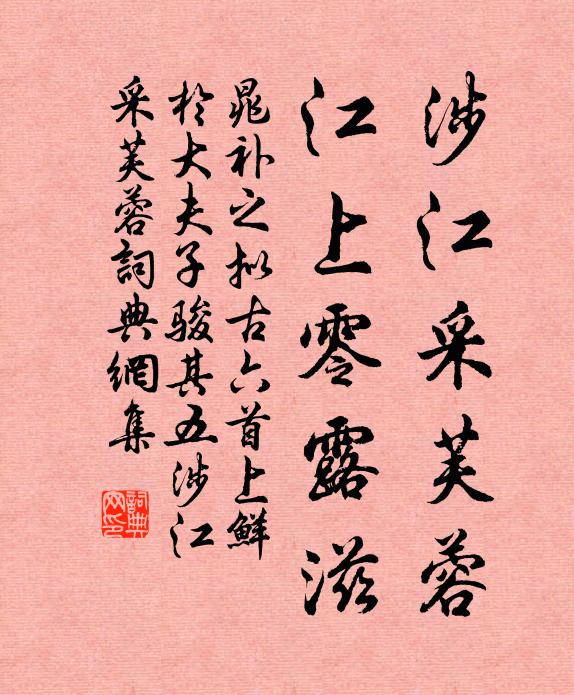 涉江采芙蓉
江上零露滋
晁补之拟古六首上鲜
於大夫子骏其五涉江
采芙蓉詞典網集
詞典
网印